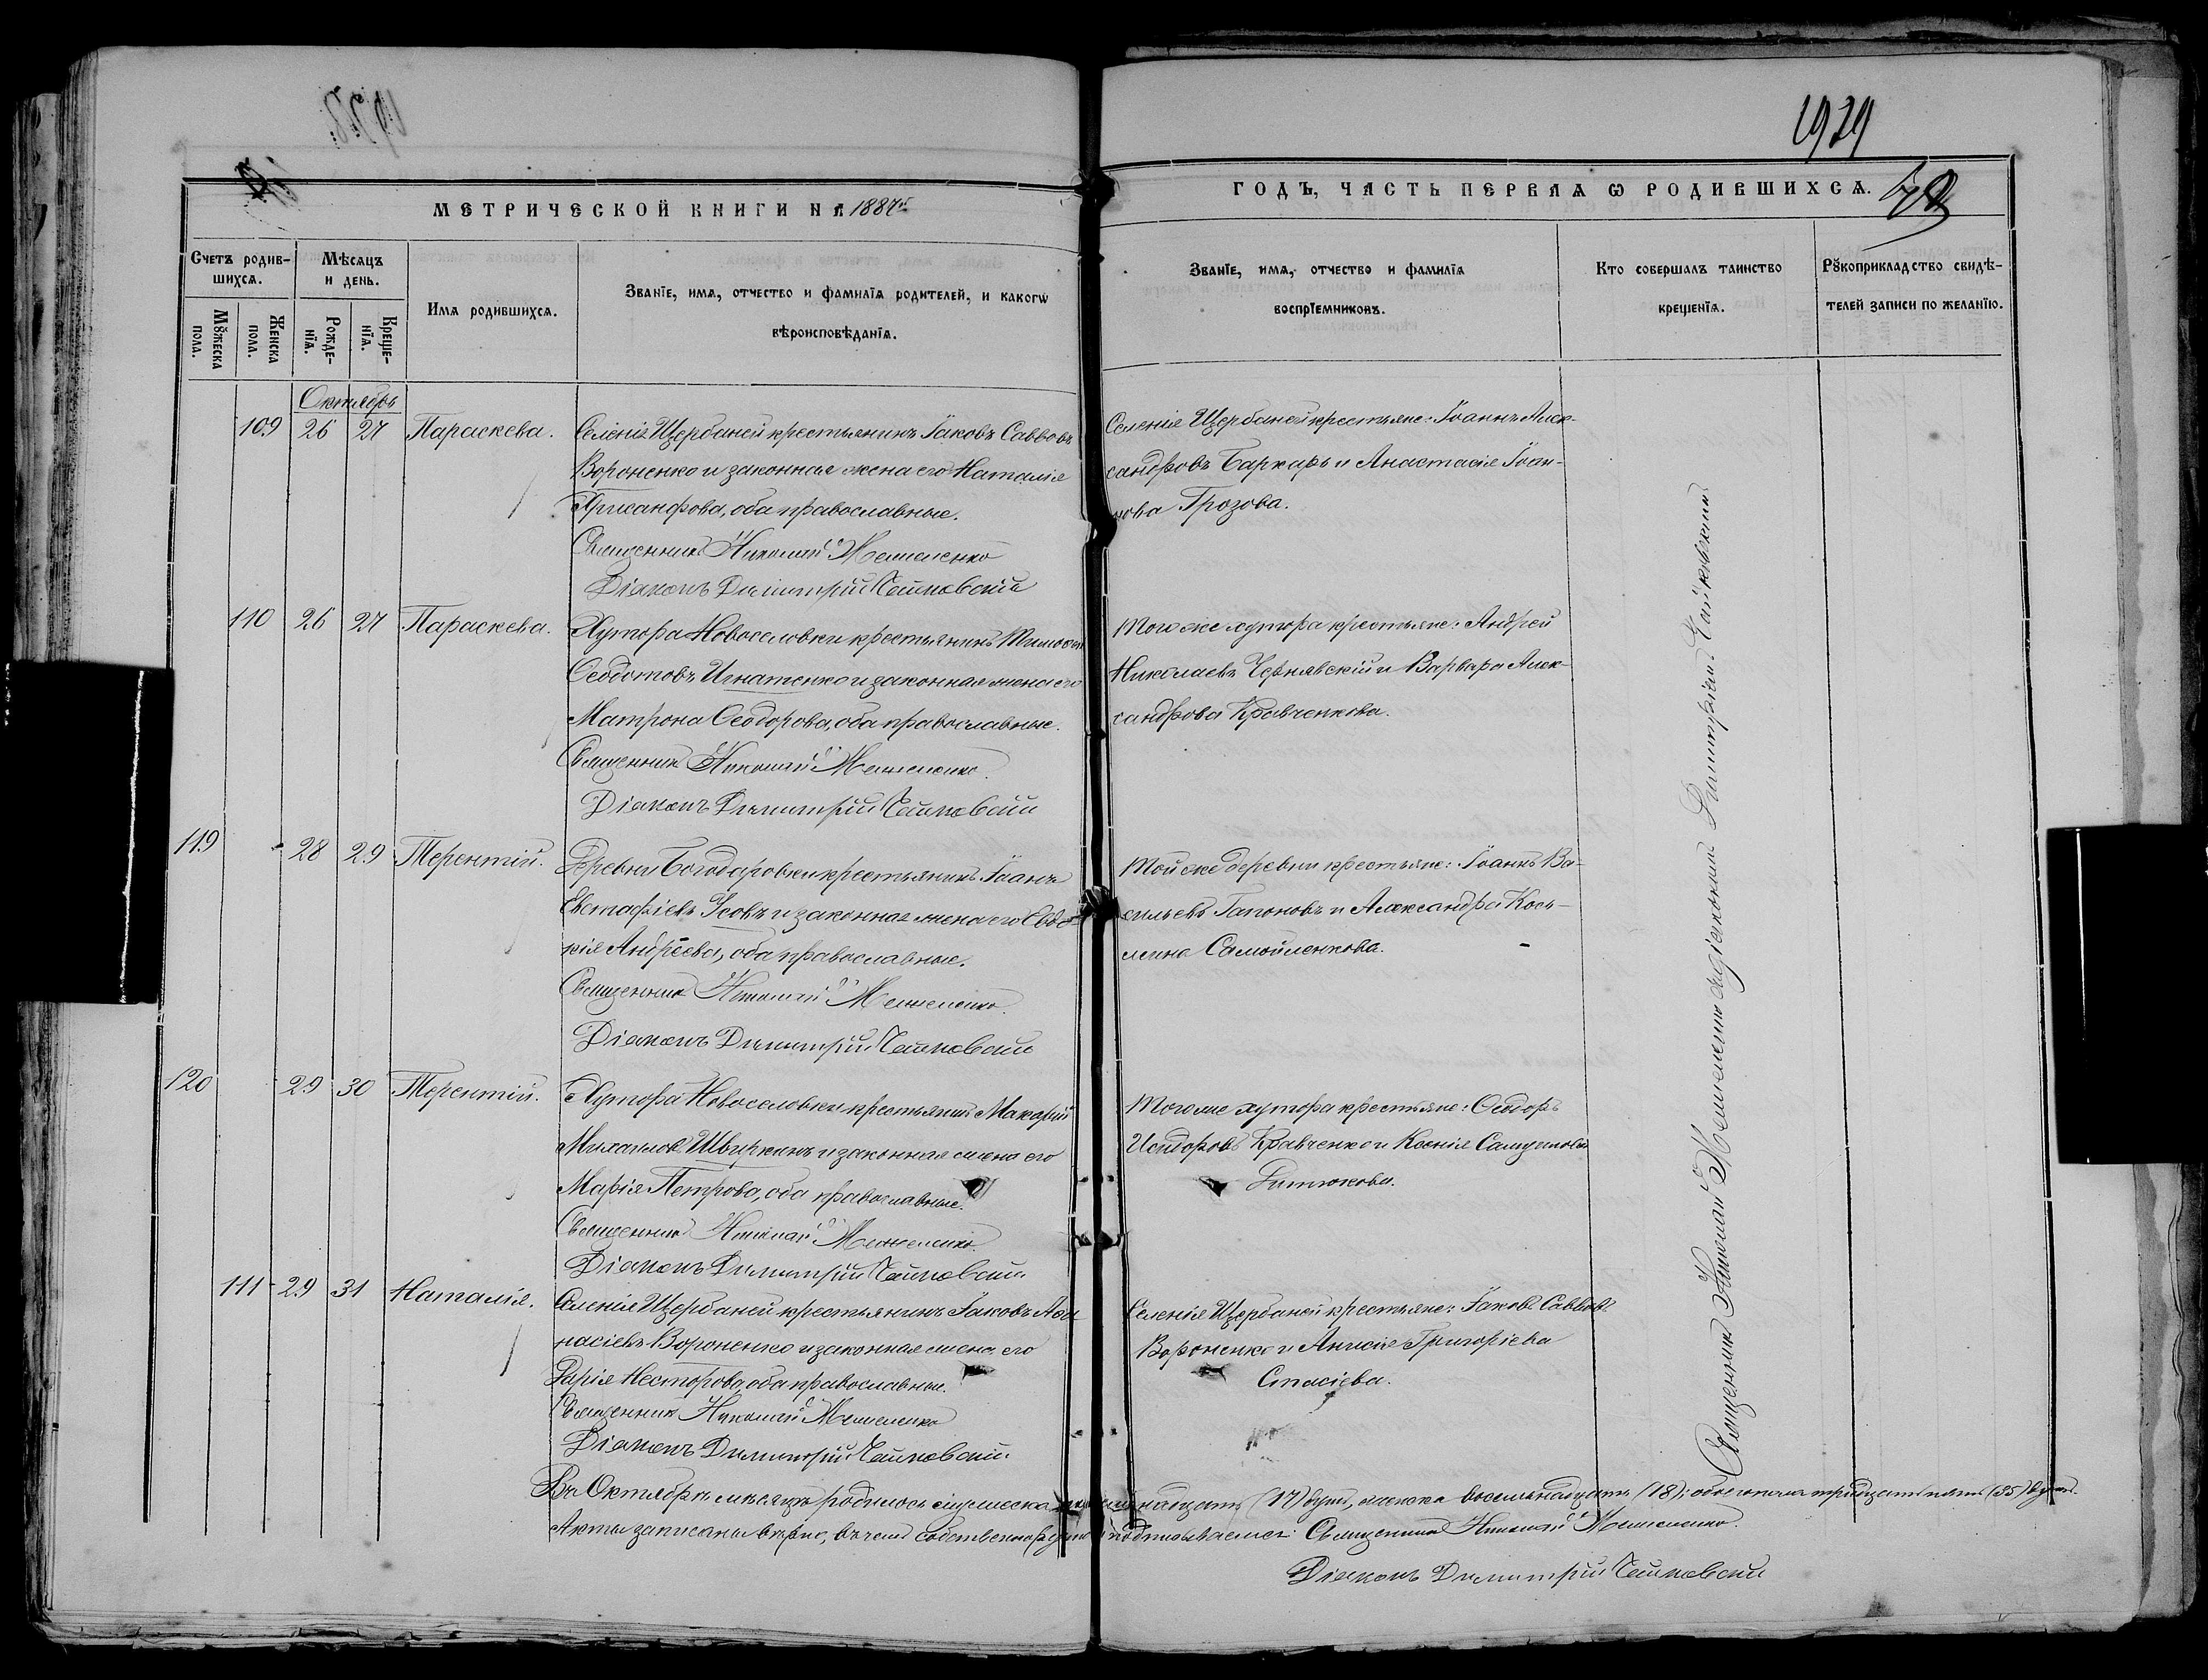 1929
МЕТРИЧЕСКОЙ КНИГИ НА 1887й
ГОДЪ, ЧАСТЬ ПЕРВАЯ Ѡ РОДИВШИХСѦ.
Счетъ родив-
шихсѧ.
Мѣсѧцъ
и день.
Мꙋжеска
пола.
Женска
пола.
Рожде-
нїѧ.
Креще-
нїѧ.
Имѧ родившихсѧ.
Званїе, имѧ, отчество и фамилїѧ родителей, и какогѡ
вѣроисповѣданїѧ.
Званїе, имѧ, отчество и фамилїѧ
воспрїемниковъ.
Кто совершалъ таинство
крещенїѧ.
Рꙋкоприкладство свидѣ-
телей записи по желанїю.
Октябрь
109 26 27 Параскева.
Селенія Щербаней крестьянинъ Іаковъ Саввовъ
Вороненко и законная жена его Наталія
Хрисанфова, оба православные.
Священникъ Николай
Діаконъ Димитрій Чайковскій
Селенія Щербаней крестьяне: Іоаннъ Алек-
сандровъ Баркарь и Анастасія Іоан-
нова Грозова.
110 26 27 Параскева.
Хутора Новоселовки крестьянинъ Тимоѳей
Ѳеодотовъ Игнатенко и законная жена его
Матрона Ѳеодорова, оба православные.
Священникъ Николай
Діаконъ Димитрій Чайковскій
Того же хутора крестьяне: Андрей
Николаевъ Чернявскій и Варвара Алек-
сандрова Кравченкова.
119 28 29 Терентій.
Деревни Богодаровки крестьянинъ Іоаннъ
Евстафіевъ Усовъ и законная жена его Евдо-
кія Андреева, оба православные.
Священникъ Николай
Діаконъ Димитрій Чайковскій
Той же деревни крестьяне: Іоаннъ Ва-
сильевъ Гапоновъ и Александра Кось-
мина Самойленкова.
120 29 30 Терентій.
Хутора Новоселовки крестьянинъ Макарій
Михаиловъ Швыркинъ и законная жена его
Марія Петрова, оба православные.
Священникъ Николай
Діаконъ Димитрій Чайковскій
Того же хутора крестьяне: Ѳеодоръ
Исидоровъ Кравченко и Ксенія Самуилова
111 29 31 Наталія.
Селенія Щербаней крестьянинъ Іаковъ Аѳа-
насіевъ Вороненко и законная жена его
Дарія Несторова, оба православные.
Священникъ Николай
Діаконъ Димитрій Чайковскій
Селенія Щербаней крестьяне: Іаковъ Саввовъ
Вороненко и Анисія Григоріева
Стасіева.
Священникъ Николай съ діакономъ Димитріемъ Чайковскимъ
Въ Октябрѣ мѣсяцѣ родилось мужеска (17) душъ, женска восемнадцать (18); обоего пола тридцать пять (35) душъ.
Акты записаны вѣрно, въ чемъ собственноручно подписываемся: Священникъ Николай
Діаконъ Димитрій Чайковскій